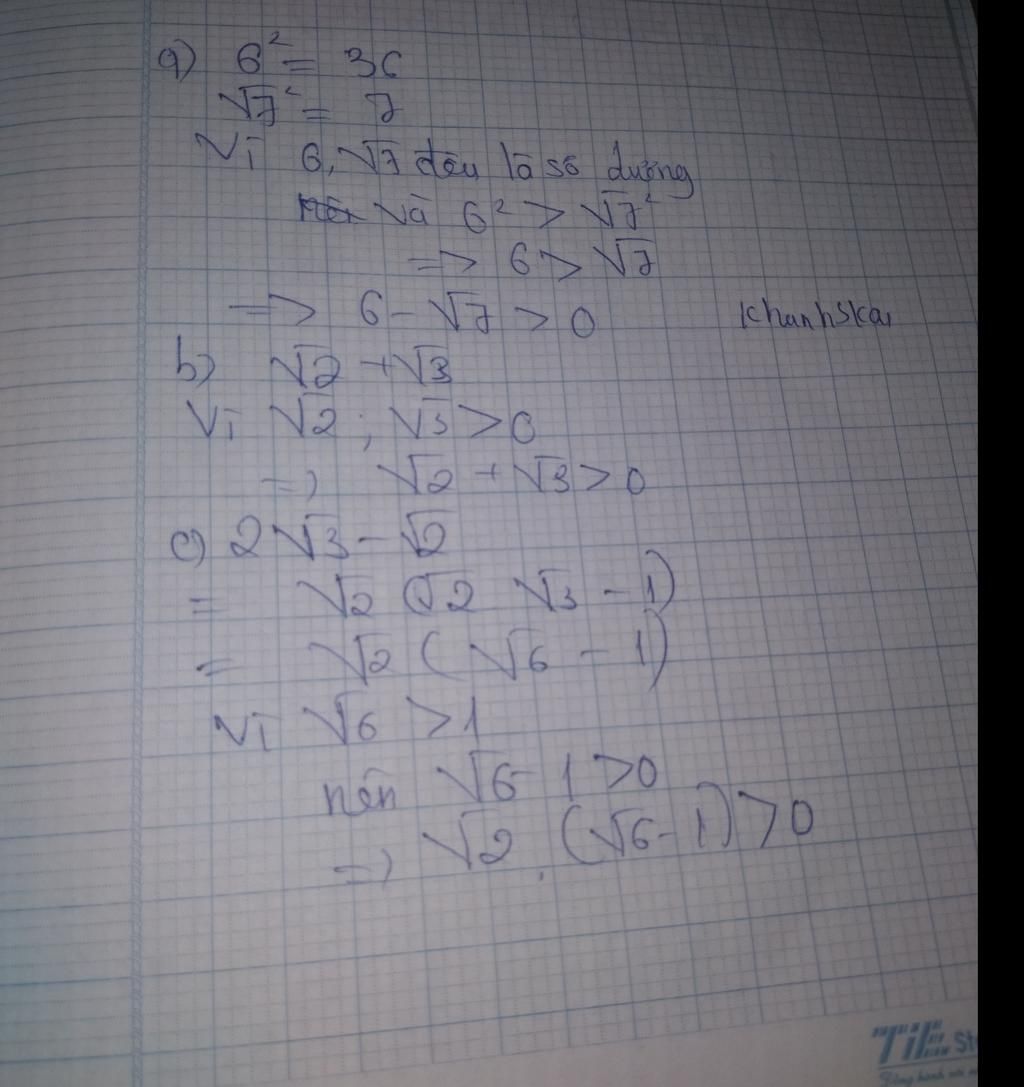 a) 6² = 36
√7² = 7
Vì 6, √7 đều là số dương
và 6² > √7²
=> 6 > √7
=> 6 - √7 > 0
KhanhSkai
b) √2 + √3
Vì √2 ; √3 > 0
=> √2 + √3 > 0
c) 2√3 - √2
= √2 (√2 √3 - 1)
= √2 ( √6 - 1)
Vì √6 > 1
nên √6 - 1 > 0
=> √2 . (√6 - 1) > 0